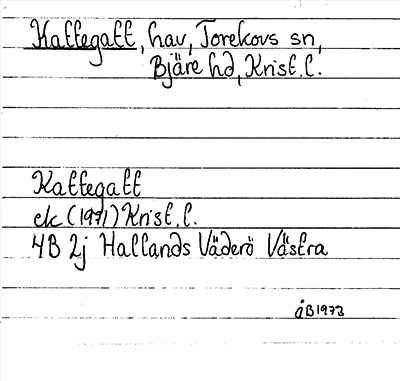 Kattegatt, hav, Torekovs sn,
Bjäre hd, Krist. l.
Kattegatt
ek (1971) Krist. l.
4B 2j Hallands Väderö Västra
ÅB 1973